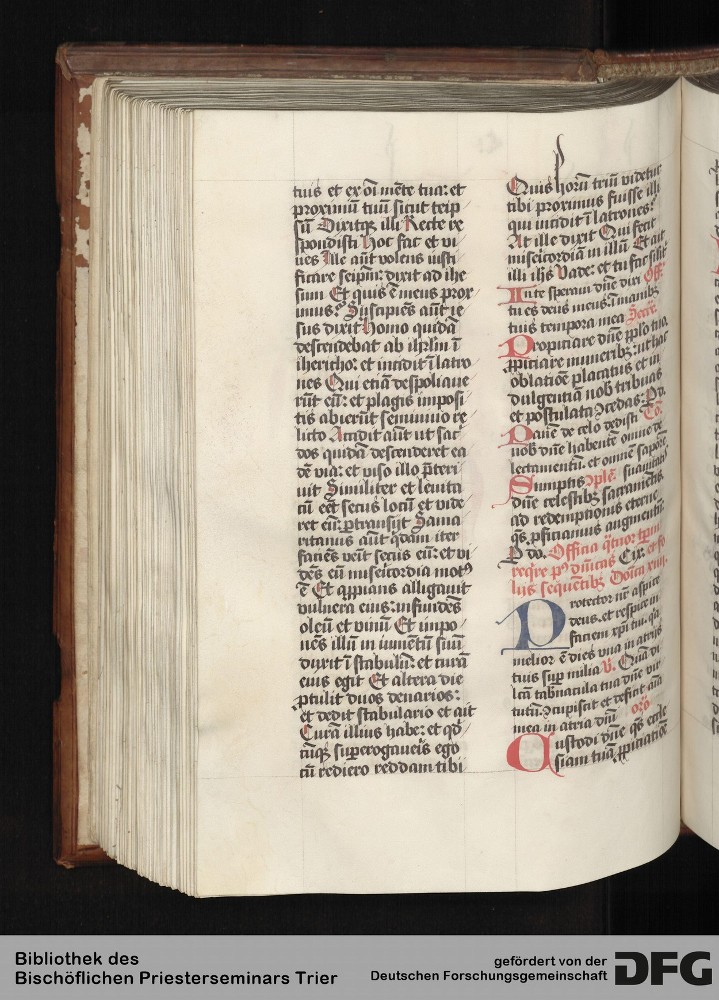 tuis et ex oi mēte tua: et
proximū tuū sicut teip
sū Dixitqꝫ illi Recte re
spondisti Hoc fac et vi
ues Ille aūt volens iusti
ficare seipm̄: dixit ad ihe
sum Et quis ē meus prox
imus Suscipiēs aūt ie
sus dixit Homo quidā
descendebat ab ihrl̄m ī
iherico: et incidit ī latro
nes Qui etiā despoliaue
rūt eū: et plagis imposi
tis abierūt semiuiuo re
licto Accidit aūt ut sac
dos quidā descenderet ea
dē via: et viso illo p̄teri
uit Similiter et leuita
cū eēt secus locū et vide
ret eū: ptransijt Sama
ritanus aūt qdam iter
faciēs venit secus eū: et vi
dēs eū misericordia motꝰ
ē Et appians alligauit
vulnera eius: infundēs
oleū et vinū Et impo
nēs illū in iumētū suū
duxit ī stabulū: et curā
eius egit Et altera die
ptulit duos denarios:
et dedit stabulario et ait
Curā illius habe: et qd
cūqꝫ superogaueis ego
cū rediero reddam tibi
Quis horū triū videtur
tibi proximus fuisse illi
qui incidit ī latrones?
At ille dixit Qui fecit
misericordiā in illū Et ait
illi ihs Vade: et tu fac silit̄
In te speraui dn̄e dixi Off̄
tu es deus meus: ī manibꝫ
tuis tempora mea Secre
Propiciare dn̄e pplo tuo
ppiciare muneribꝫ: ut hac
oblatiōe placatus et in
dulgentiā nob tribuas
et postulata ɔcedas: P d.
Panē de celo dedisti Cō.
nob dn̄e habentē omne de
lectamentū. et omnē saporē
Sumptis ɔplē. suauitatꝭ
dn̄e celestibꝫ sacramētis
ad redemptionis eterne
qs pficiamus augmentū:
P do. Officia qtuor tpm
reqre pꝰ dnicas Cix. et fo
lijs sequētibꝫ Doica xiiij.
Protector nr̄ aspice
deus. et respice in
faciem xpi tui. qa
melior ē dies vna in atrijs
tuis supr milia V. Quā di
lc̄a tabnacula tua dn̄e vir
tutū. ɔcupiscit et deficit aīa
mea in atria dn̄i oro
Custodi dn̄e qs eccle
siam tuā ppiciatiōe
Bibliothek des
Bischöflichen Priesterseminars Trier
gefördert von der
Deutschen Forschungsgemeinschaft
DFG